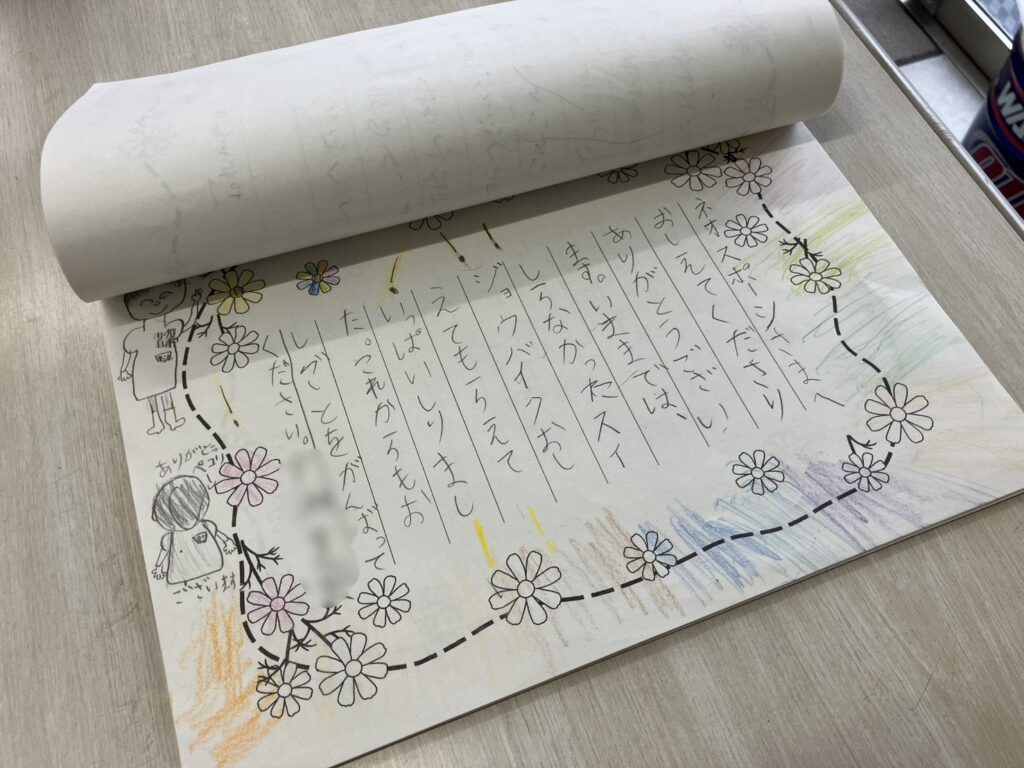 ネオスポーツさまへ
おしえてくださり
ありがとうござい
ます。いままでは、
しらなかったスイ
ジョウバイクおし
えてもらえて
いっぱいしりまし
た。これからもお
しごとをがんばって
ください。
ありがとう
ペコリ
ございます